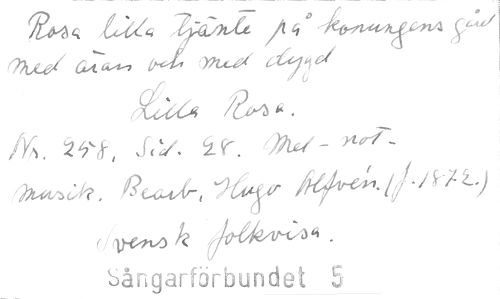 Rosa lilla tjänte på konungens gård
med äran och med dygd
Lilla Rosa.
Nr. 258, Sid. 28. Mel-not-
musik. Bearb, Hugo Alfvén. (f. 1872.)
Svensk folkvisa.
Sångarförbundet 5